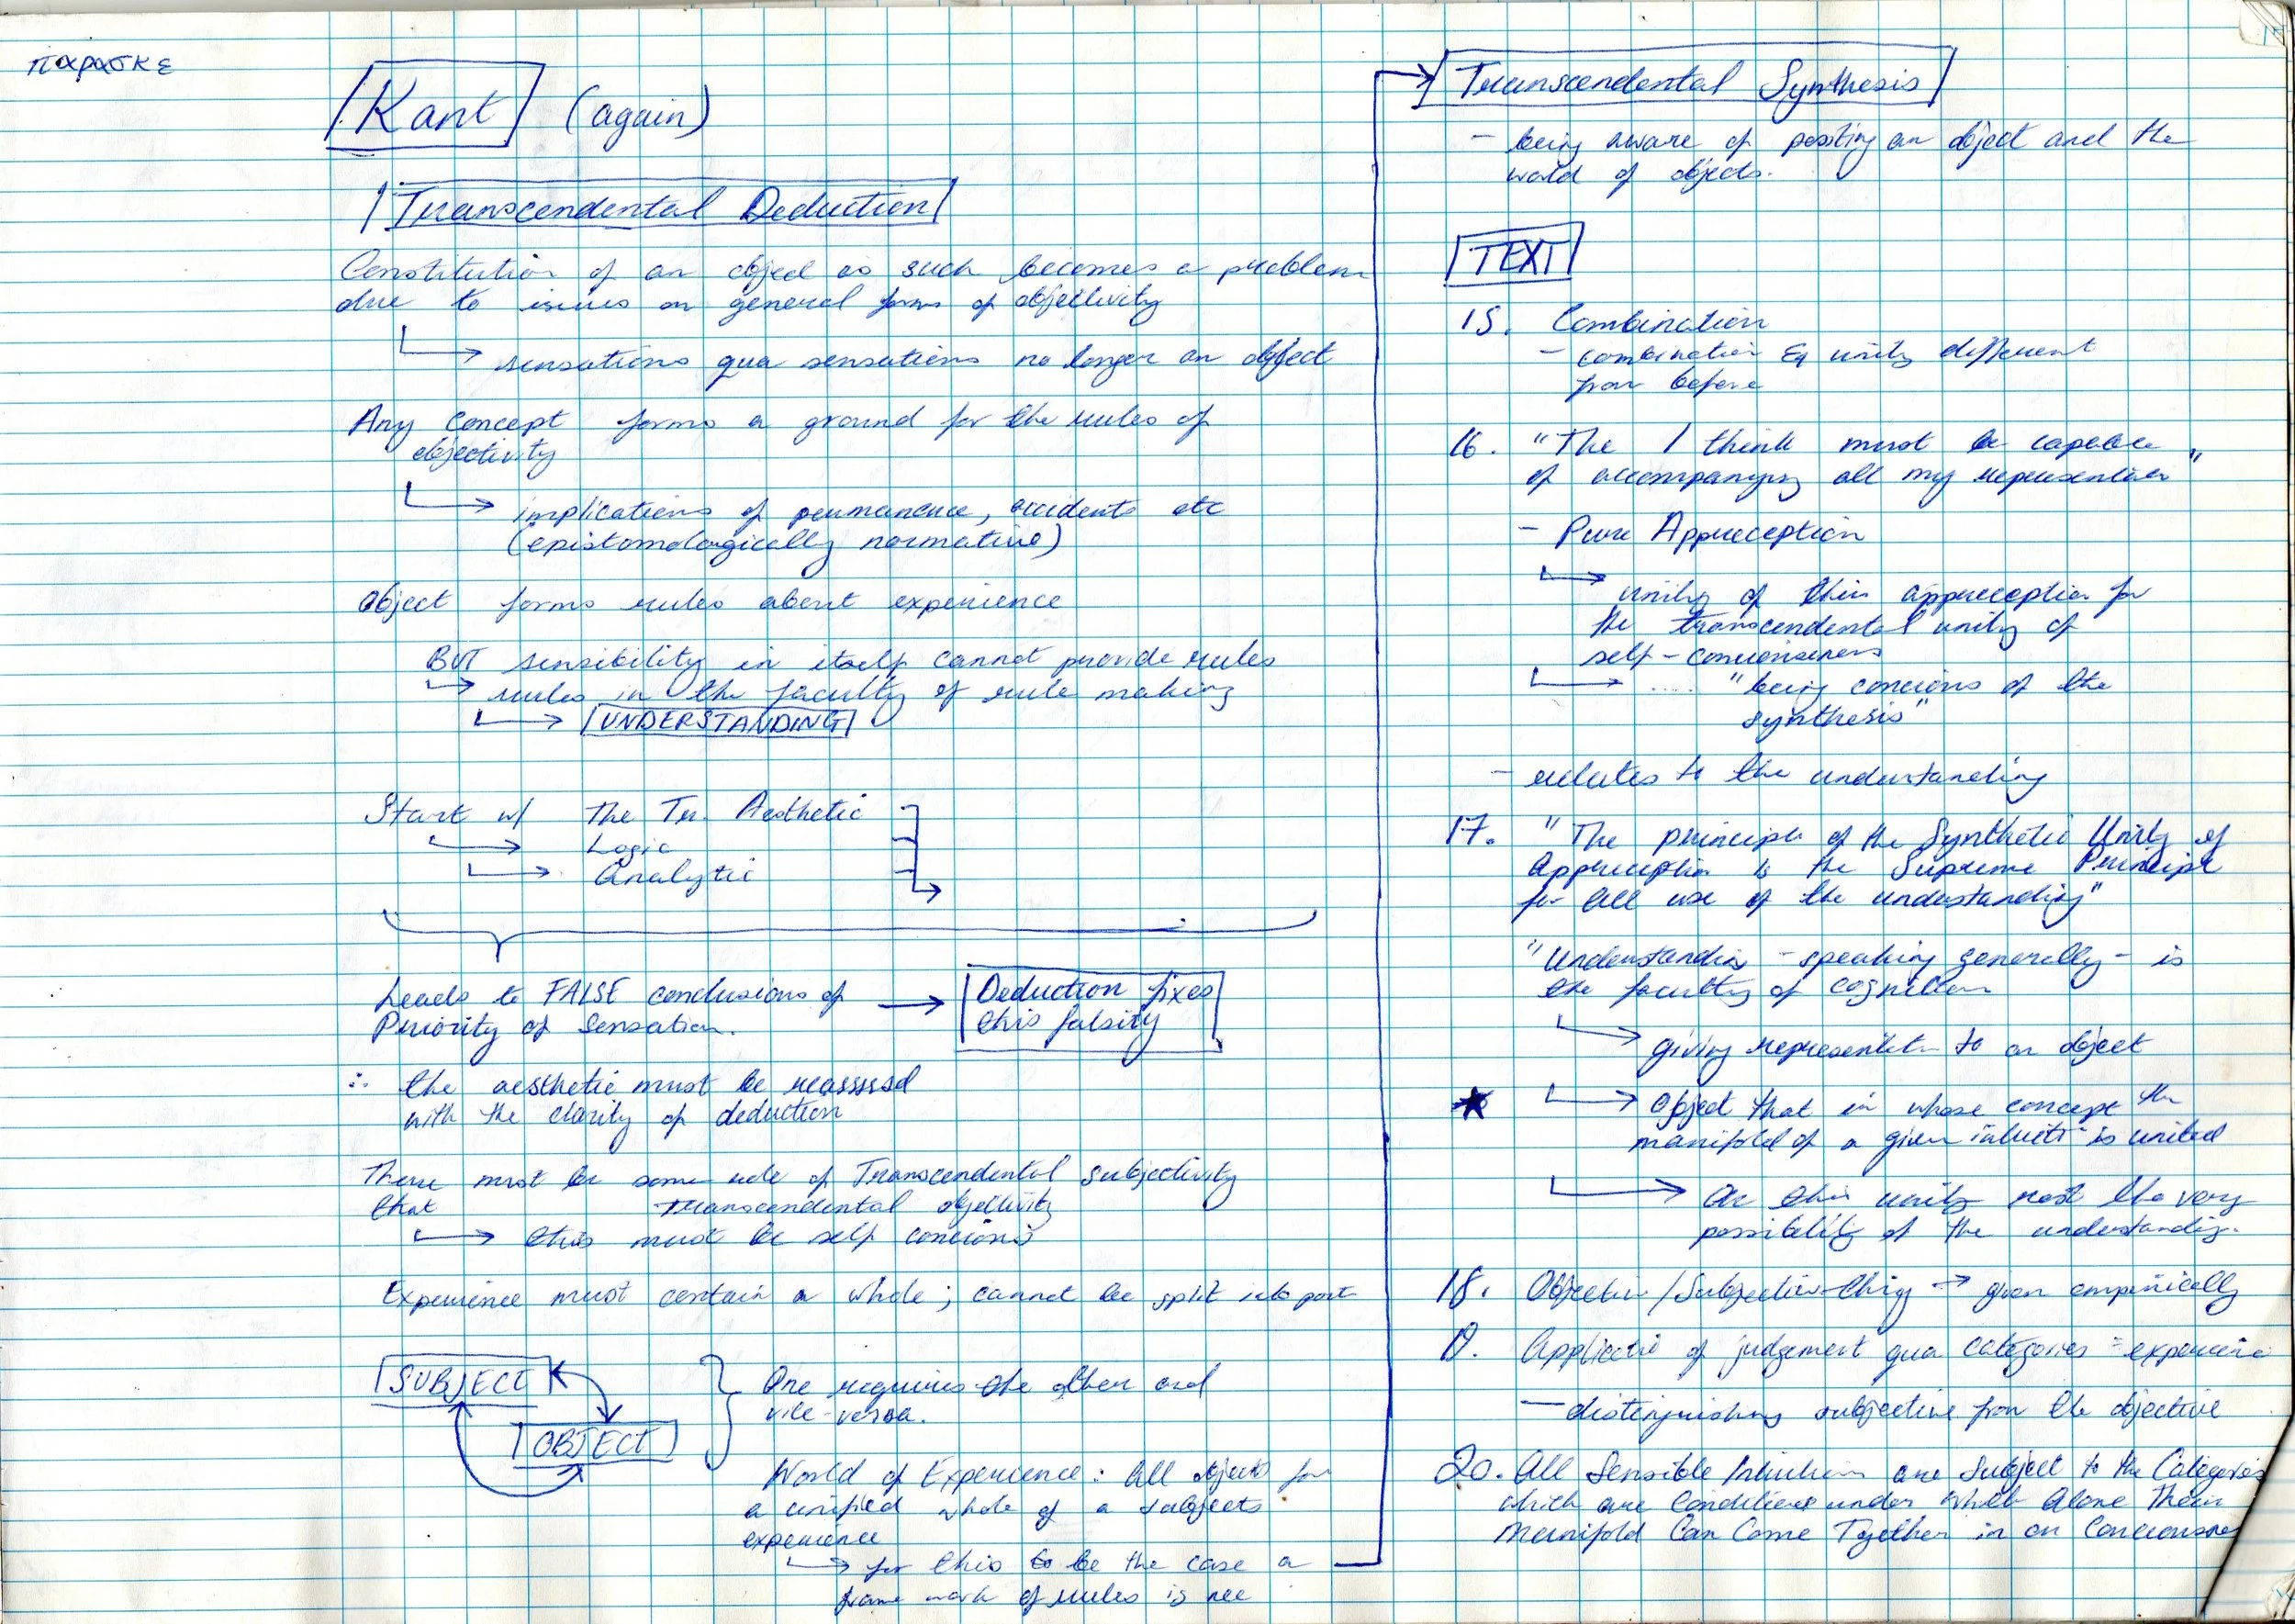 παρασκε
Kant (again)
Transcendental Deduction
Constitution of an object as such becomes a problem
due to issues on general forms of objectivity
sensations qua sensations no longer an object
Any concept forms a ground for the rules of
objectivity
implications of permanence, accidents etc
(epistomologically normative)
Object forms rules about experience
BUT sensibility in itself cannot provide rules
rules in the faculty of rule making
UNDERSTANDING
Start w/ The Tr. Aesthetic
Logic
Analytic
Leads to FALSE conclusions of
Priority of Sensation.
Deduction fixes
this falsity
∴ the aesthetic must be reassessed
with the clarity of deduction
There must be some role of Transcendental Subjectivity
that Transcendental objectivity
this must be self concious
Experience must contain a whole; cannot be split into part
SUBJECT
OBJECT
One requires the other and
vice-versa.
World of Experience: All objects for
a unified whole of a subjects
experience
for this to be the case a
frame work of rules is nee
Transcendental Synthesis
- being aware of positing an object and the
world of objects.
TEXT
15. Combination
- combination Eq unity different
from before
16. "The I think must be capable
of accompanying all my representation"
- Pure Apprception
unity of this apprception for
the transcendental unity of
self-conciousness
.... "being concious of the
synthesis"
- relates to the understanding
17. "The principle of the Synthetic Unity of
Apprception is the Supreme Principle
for all use of the understanding"
"Understanding - speaking generally - is
the faculty of cognition
giving representatn to an object
★ Object that in whose concept the
manifold of a given intuitn is united
On this unity rest the very
possibility of the understanding.
18. Objective/Subjective thing → given empirically
19. Application of judgement qua categories = experience
- distinguishing subjective from the objective
20. All Sensible Intuitions are Subject to the Categories
which are Conditions under Which Alone Their
Manifold Can Come Together in on Conciousness